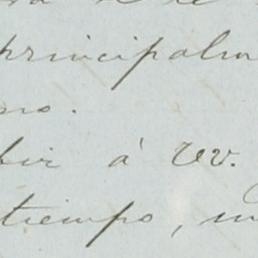 principalm
no.
bir á VV.
tiempo, m